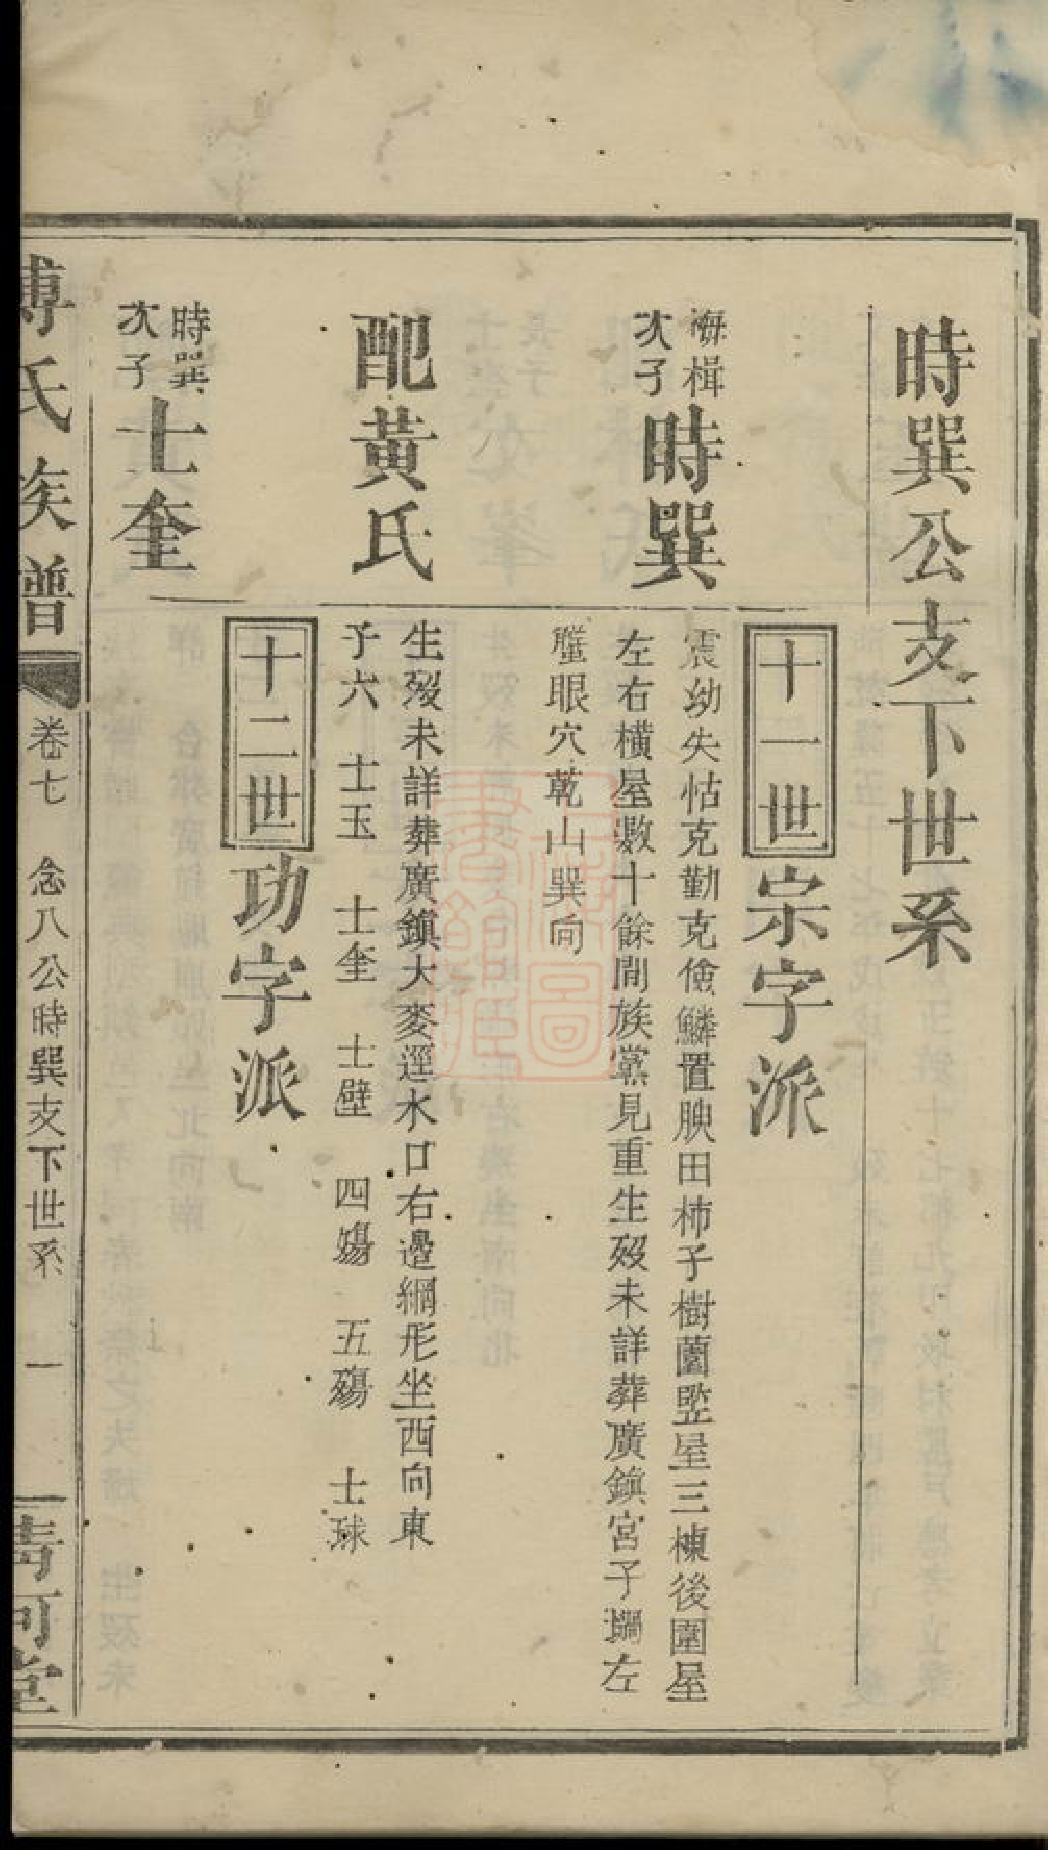 時巽公支下世系
十一世宗字派
楫次子時巽
震幼失怙克勤克儉鱗置腴田柿子樹薗竪屋三棟後圍屋
左右橫屋數十餘間族黨見重生殁未詳葬廣鎮宮子澗左
蟹眼穴乾山巽向
配黃氏
生殁未詳葬廣鎮大麥逕水口右邊網形坐西向東
子六 士玉 士奎 士壁 四殤 五殤 士球
十二世功字派
時巽次子士奎
傅氏族譜 卷七 念八公時巽支下世系 一 清河堂